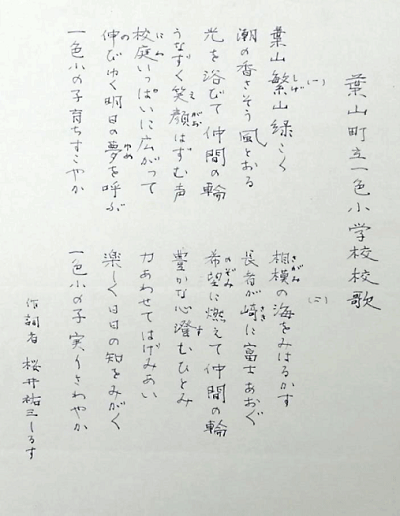 葉山町立一色小学校校歌
(一)
葉山繁山緑こく
潮の香さそう風とおる
光を浴びて仲間の輪
うなずく笑顔はずむ声
校庭いっぱいに広がって
伸びゆく明日の夢を呼ぶ
一色小の子育ちすこやか
(二)
相模の海をみはるかす
長者が崎に富士あおぐ
希望に燃えて仲間の輪
豊かな心澄むひとみ
力あわせてはげみあい
楽しく日日の知をみがく
一色小の子実りさわやか
作詞者 桜井祐三しるす